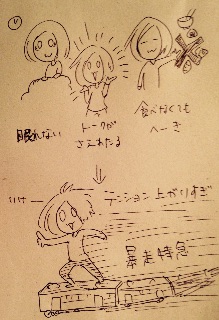 眠れない
トークが
さえわたる
食べなくても
へーき
テンション上がりすぎ
暴走特急